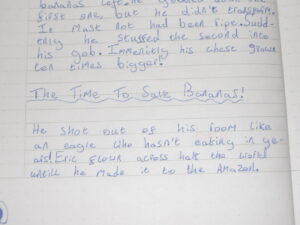 bananas left. He gobbled down the
first one, but he didn't transform.
It must not had been ripe. Sudd-
enly he stuffed the second into
his gob. Immenietly his chest grown
ten times bigger!
The Time To Save Bananas!
He shot out of his room like
an eagle who hasn't eaking in ye-
ars! Eric flown across half the world
untill he made it to the Amazon.